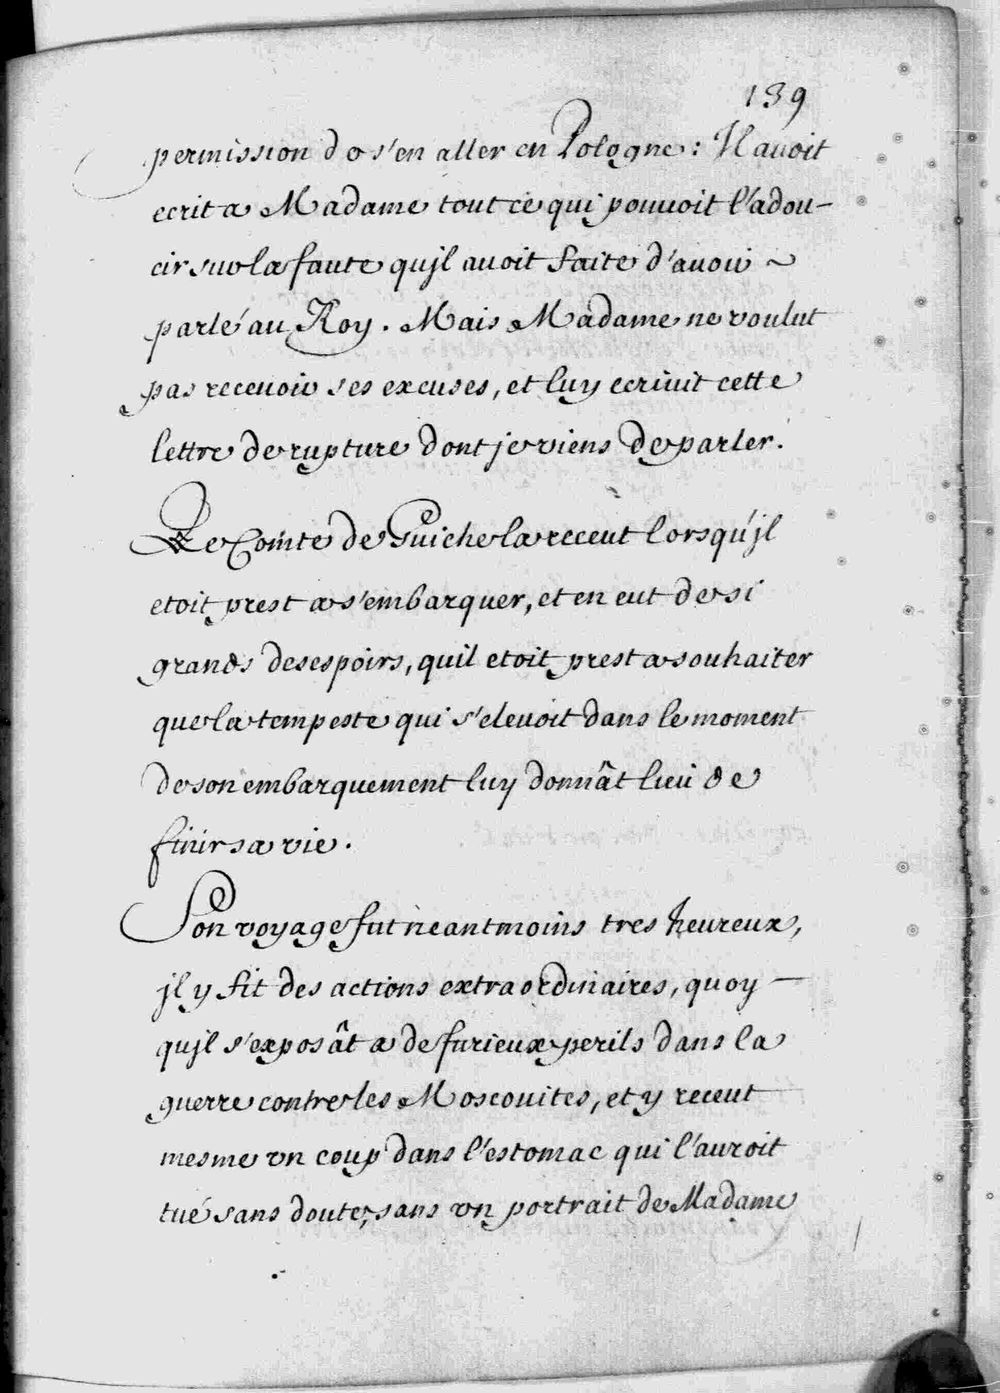 139
permission de s'en aller en Pologne : Il auoit
ecrit a Madame tout ce qui pouuoit l'adou-
cir sur la faute qujl auoit faite d'auoir ~
parlé au Roy. Mais Madame ne voulut
pas receuoir ses excuses, et luy ecriuit cette
lettre de rupture dont je viens de parler.
Le Comte de Guiche la receut lorsqu'jl
etoit prest a s'embarquer, et en eut de si
grands desespoirs, quil etoit prest a souhaiter
que la tempeste qui s'eleuoit dans le moment
de son embarquement luy donnât lieu de
finir sa vie.
Son voyage fut neantmoins tres heureux,
jl y fit des actions extraordinaires, quoy —
qujl s'exposât a de furieux perils dans la
guerre contre les Moscouites, et y receut
mesme vn coup dans l'estomac qui l'auroit
tué sans doute, sans vn portrait de Madame